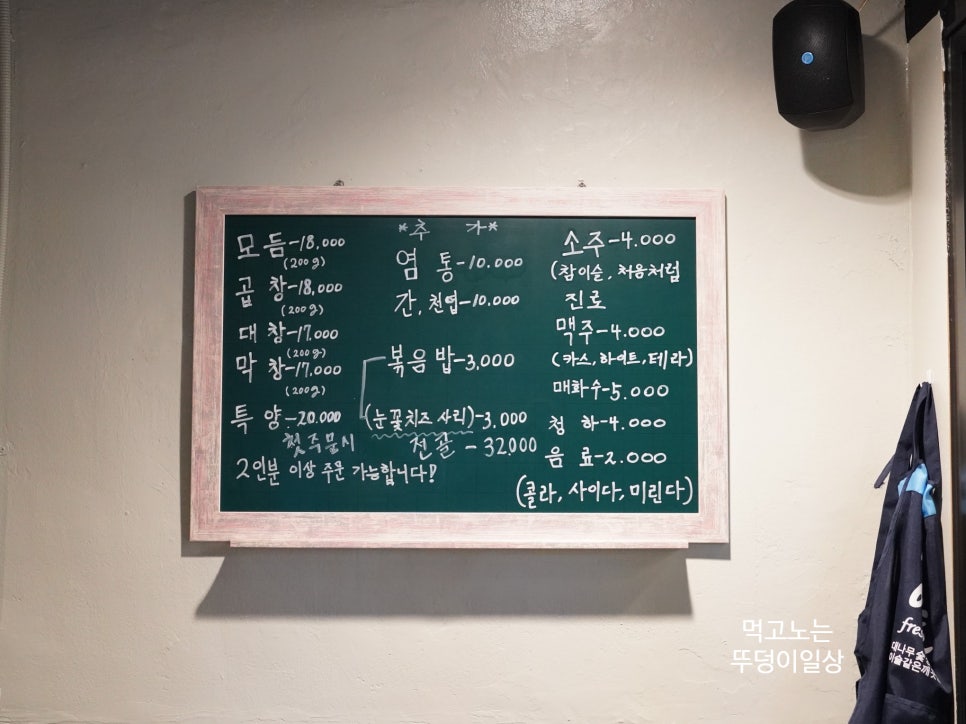 모듬-18,000
(200g)
곱창-18,000
(200g)
대창-17,000
(200g)
막창-17,000
(200g)
특양-20.000
첫주문시
2인분 이상 주문 가능합니다!
*추 가*
염통-10.000
간,천엽-10.000
볶음밥-3,000
(눈꽃치즈 사리)-3.000
전골-32,000
소주-4.000
(참이슬, 처음처럼
진로
맥주-4.000
(카스,하이트,테라)
매화수-5.000
청하-4.000
음료-2.000
(콜라, 사이다, 미린다)
먹고노는
뚜덩이일상
fres
대나무숯
이슬같은깨